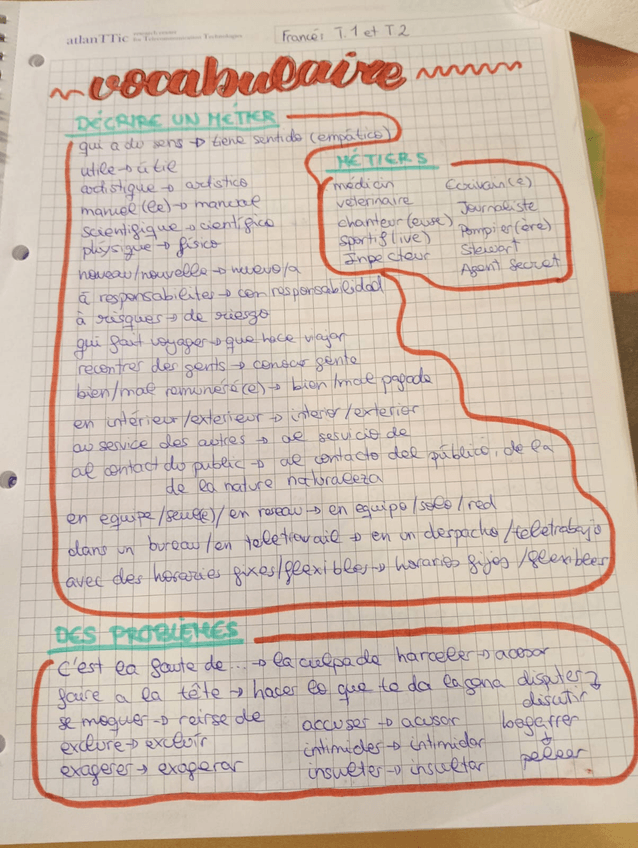 atlanTTic research center for Telecommunication Technologies
Francés T.1 et T.2
vocabulaire
DÉCRIRE UN MÉTIER
qui a du sens → tiene sentido (empático)
utile → útil
artistique → artístico
manuel (le) → manual
scientifique → científico
physique → físico
noveau/nouvelle → nuevo/a
à responsabilites → con responsabilidad
à risques → de riesgo
qui fait voyager → que hace viajar
recontrer des gents → conocer gente
bien/mal remunéré(e) → bien/mal pagado
en intérieur/exterieur → interior/exterior
au service des autres → al servicio de
al contact du public → al contacto del público, de la
de la nature naturaleza
en equipe/seul(e)/en reseau → en equipo/solo/red
dans un bureau/en teletravail → en un despacho/teletrabajo
avec des horaries fixes/flexibles → horarios fijos/flexibles
MÉTIERS
médicin
veterinaire
chanteur (euse)
sportif (ive)
Inpecteur
Écrivain(e)
Journaliste
Pompier (ère)
Stewart
Agent Secret
DES PROBLÈMES
c'est la faute de... → la culpa de
faire a la tête → hacer lo que te da la gana
se moquer → reirse de
exclure → excluir
exagerer → exagerar
harceler → acosar
accuser → acusar
intimider → intimidar
insulter → insultar
disputer → discutir
bagarrer → pelear